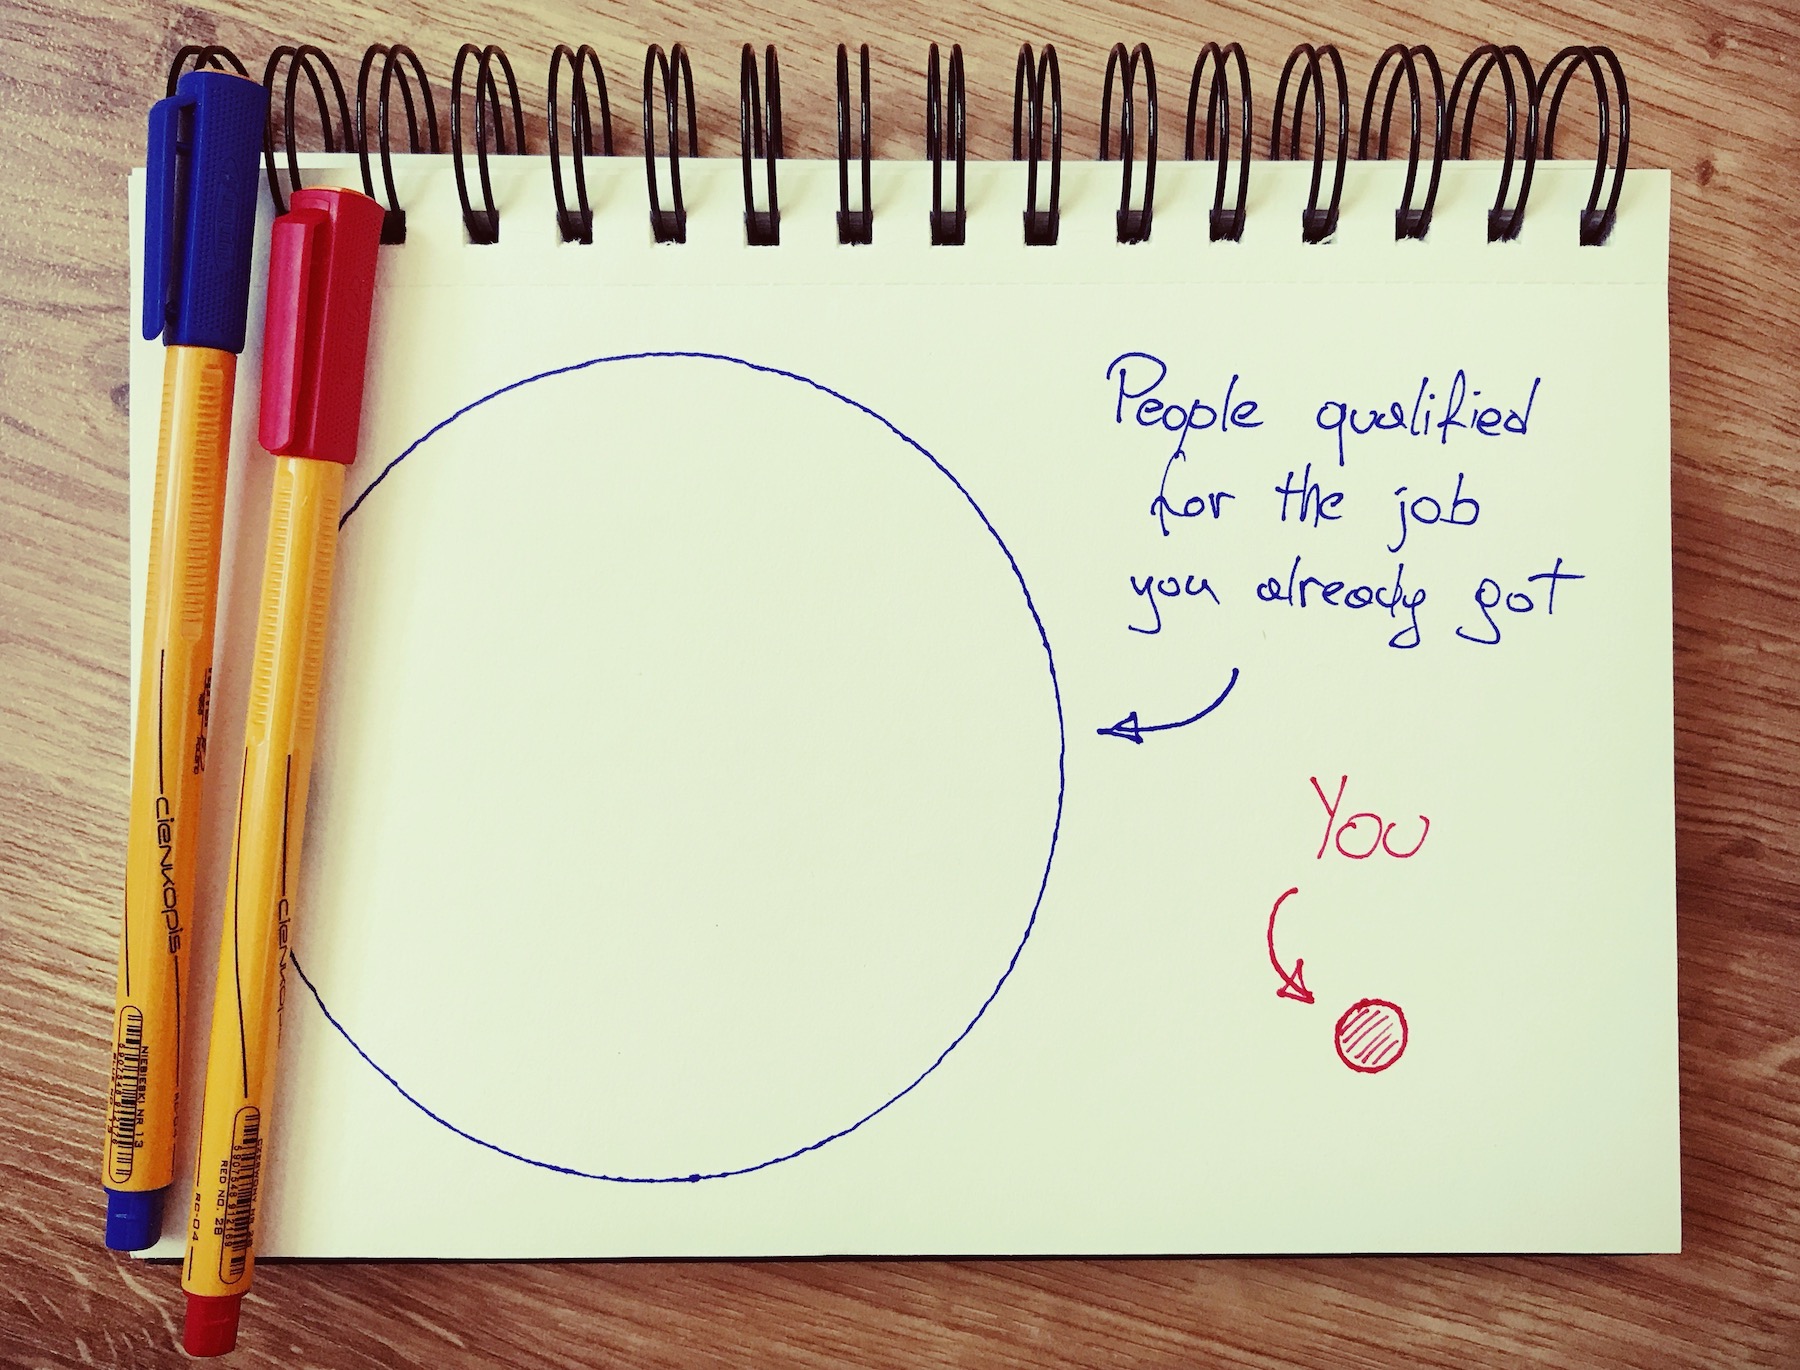 People qualified
for the job
you already got
You
cienkopis
NIEBIESKI NR 13
5907548912176
cienkop
RED NO. 28
5907548912169
RC-04